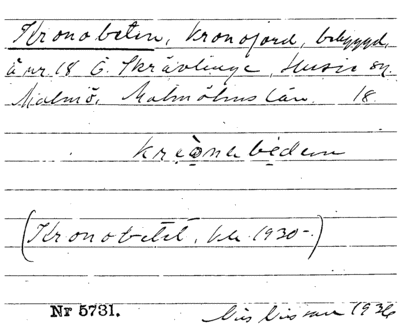 Kronobeten, kronojord, bebyggd,
å nr. 18 Ö. Skrävlinge, Husie sn.
Malmö, Malmöhus län. 18.
kreǫnebedemn
(Kronobetet, bl. 1930-.)
Nr 5731.
1936